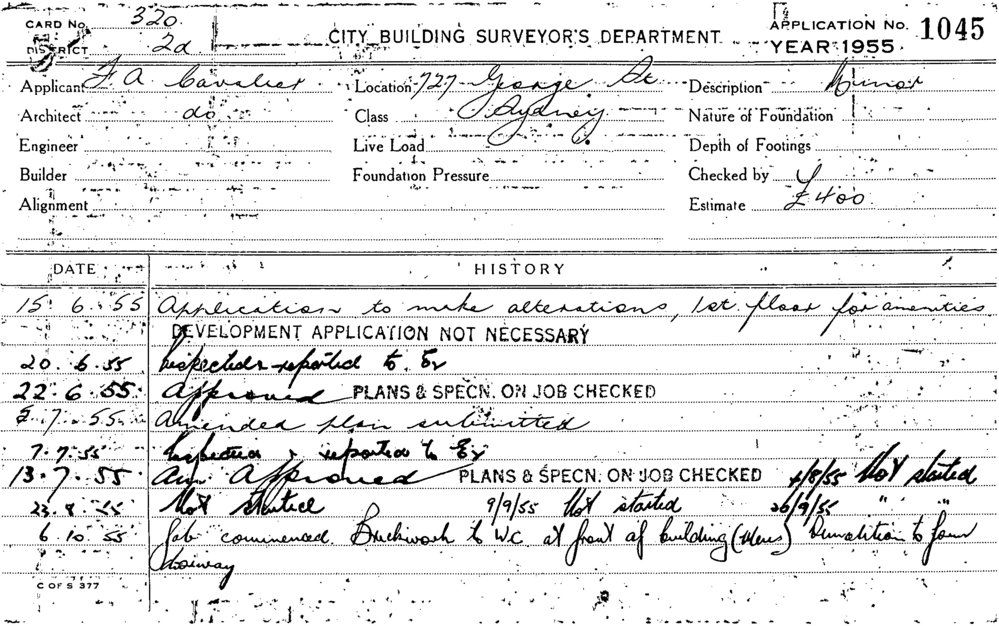 CARD No. 320
DISTRICT 2d
CITY BUILDING SURVEYOR'S DEPARTMENT
APPLICATION No. 1045
YEAR 1955
Applicant F A Cavalier Location 727 George St Description Minor
Architect do Class Sydney Nature of Foundation
Engineer Live Load Depth of Footings
Builder Foundation Pressure Checked by
Alignment Estimate £400
DATE HISTORY
15 6 55 Application to make alterations, 1st floor for amenities
DEVELOPMENT APPLICATION NOT NECESSARY
20.6.55 Inspected & reported to Ex
22.6.55 Approved PLANS & SPECN. ON JOB CHECKED
5.7.55 Amended plan submitted
7.7.55 Inspected & reported to Ex
13.7.55 Am. Approved PLANS & SPECN. ON JOB CHECKED 4/8/55 Not started
23.8.55 Not started 9/9/55 Not started 26/9/55 " "
6.10.55 Job commenced. Brickwork to WC at front of building (Mens) Demolition to form
doorway
C OF S 377